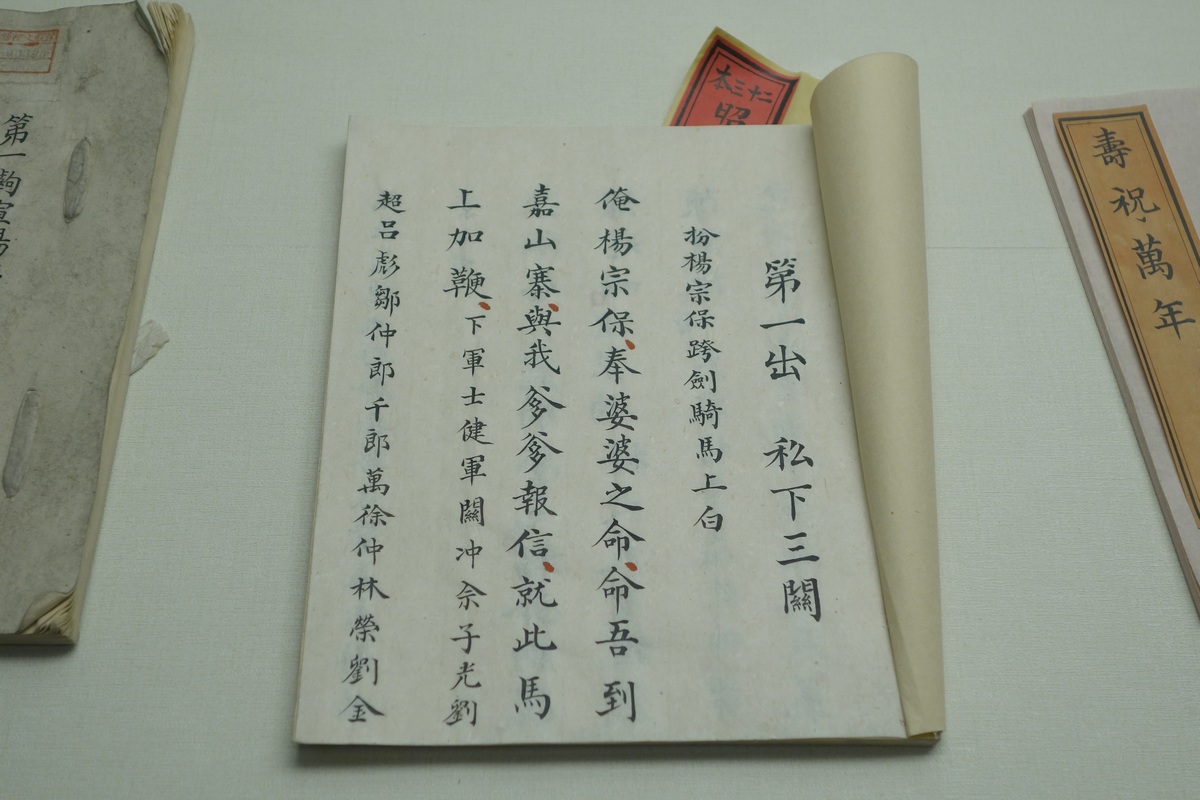 第一出 私下三關
扮楊宗保跨劍騎馬上白
俺楊宗保、奉婆婆之命、命吾到
嘉山寨、與我爹爹報信、就此馬
上加鞭、下軍士健軍關冲佘子光劉
超呂彪鄒仲郎千郎萬徐仲林榮劉金
二十三本
昭
壽祝萬年
第一齣宣揚